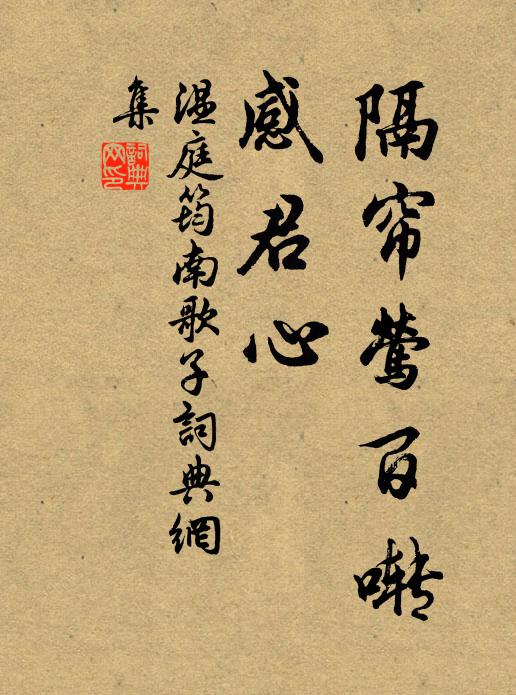 隔帘莺百啭
感君心
温庭筠南歌子詞典網
集
詞典網印